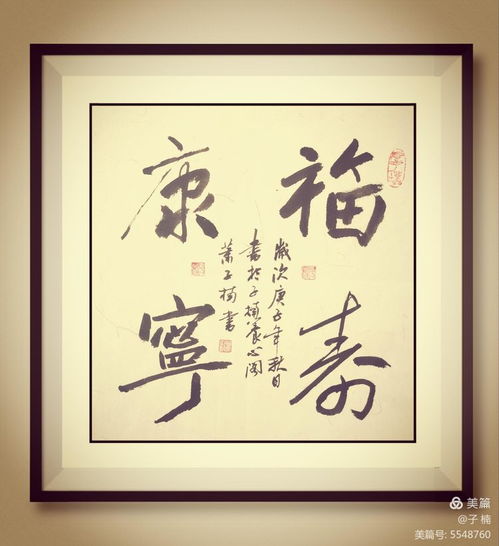 福寿
康寧
岁次庚子年秋月
書於子楠養心阁
萧子楠書
美篇
@子 楠
美篇号: 5548760